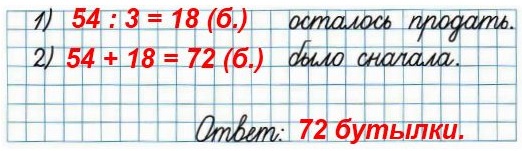 1) 54 : 3 = 18 (б.) осталось продать.
2) 54 + 18 = 72 (б.) было сначала.
Ответ: 72 бутылки.